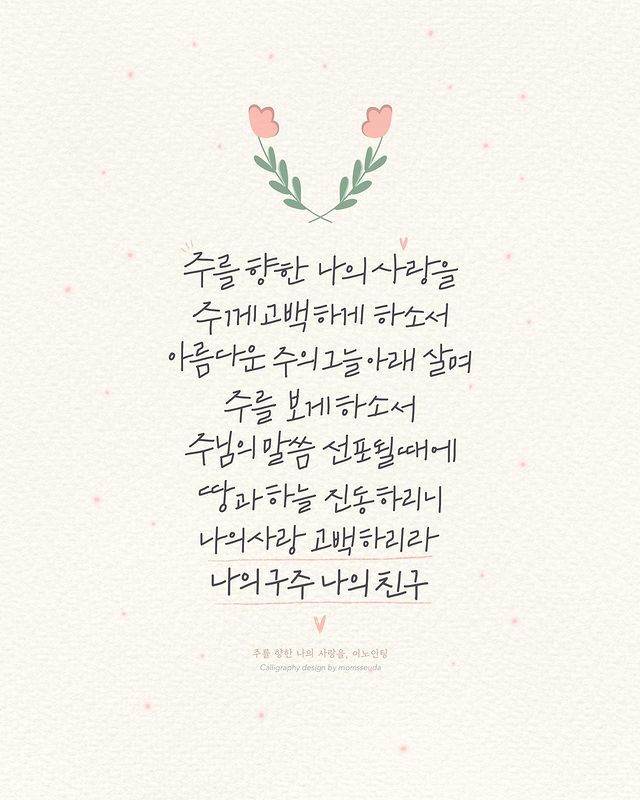 주를 향한 나의 사랑을
주께 고백하게 하소서
아름다운 주의 그늘 아래 살며
주를 보게 하소서
주님의 말씀 선포될 때에
땅과 하늘 진동하리니
나의 사랑 고백하리라
나의 구주 나의 친구
주를 향한 나의 사랑을, 어노인팅
Calligraphy design by momsseuda